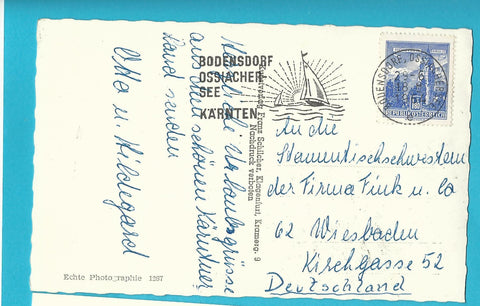 Herzliche Urlaubsgrüsse
aus dem schönen Kärntner
Land senden
Otto u. Hildegard
Echte Photographie 1287
Franz Schilcher, Klagenfurt, Kramerg. 9
Nachdruck verboten
BODENSDORF
OSSIACHER
SEE
KÄRNTEN
BODENSDORF, OSSIACHER
REPUBLIK ÖSTERREICH
An die
Stammtischschwestern
der Firma Fink u. Co
62 Wiesbaden
Kirchgasse 52
Deutschland